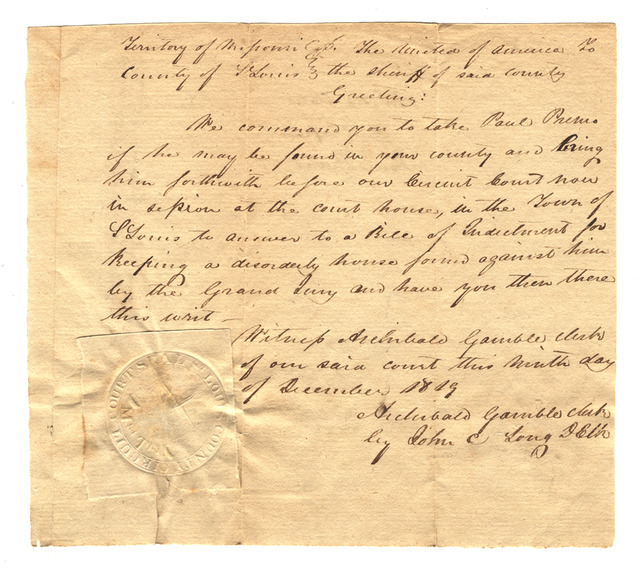 Territory of Missouri Sct. The United of America To
County of St Louis the sheriff of said County
Greeting:
We command you to take Paul Primo
if he may be found in your county and bring
him forthwith before our Circuit Court now
in session at the court house, in the Town of
St Louis to answer to a Bill of Indictment for
keeping a disorderly house found against him
by the Grand Jury and have you then there
this writ —
Witness Archibald Gamble clerk
of our said court this Ninth day
of December 1819
Archibald Gamble clerk
by John C Long D Clk
CIRCUIT COURT ST LOUIS COUNTY